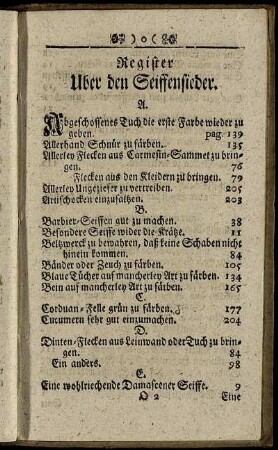 )o(
Register
Uber den Seiffensieder.
A.
Abgeschossenes Tuch die erste Farbe wieder zu
geben. pag. 139
Allerhand Schnür zu färben. 135
Allerley Flecken aus Carmesin-Sammet zu brin-
gen. 76
Flecken aus den Kleidern zu bringen. 79
Allerley Ungeziefer zu vertreiben. 205
Artischocken einzusalzen. 203
B.
Barbier-Seiffen gut zu machen. 38
Besondere Seiffe wider die Krätze. 11
Beltzwerck zu bewahren, daß keine Schaben nicht
hinein kommen. 84
Bänder oder Zeuch zu färben. 105
Blaue Tücher auf mancherley Art zu färben. 134
Bein auf mancherley Art zu färben. 165
C.
Corduan-Felle grün zu färben. 177
Cucumern sehr gut einzumachen. 204
D.
Dinten-Flecken aus Leinwand oder Tuch zu brin-
gen. 84
Ein anders. 98
E.
Eine wohlriechende Damascener Seiffe. 9
O 2 Eine